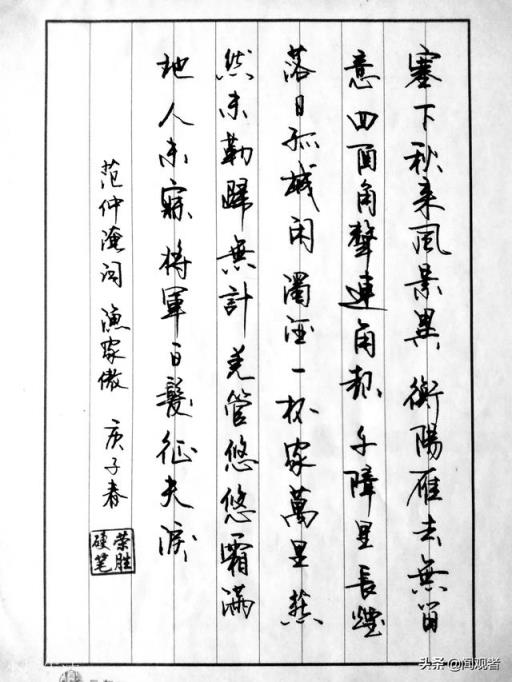 塞下秋来風景異衡陽雁去無留
意四面角聲連角起千障里長煙
落日孤城闭濁酒一杯家萬里燕
然未勒歸無計羌管悠悠霜滿
地人未寐將軍白髮征夫淚
范仲淹词 漁家傲 庚子春
荣胜
硬笔
头条 @闻观者